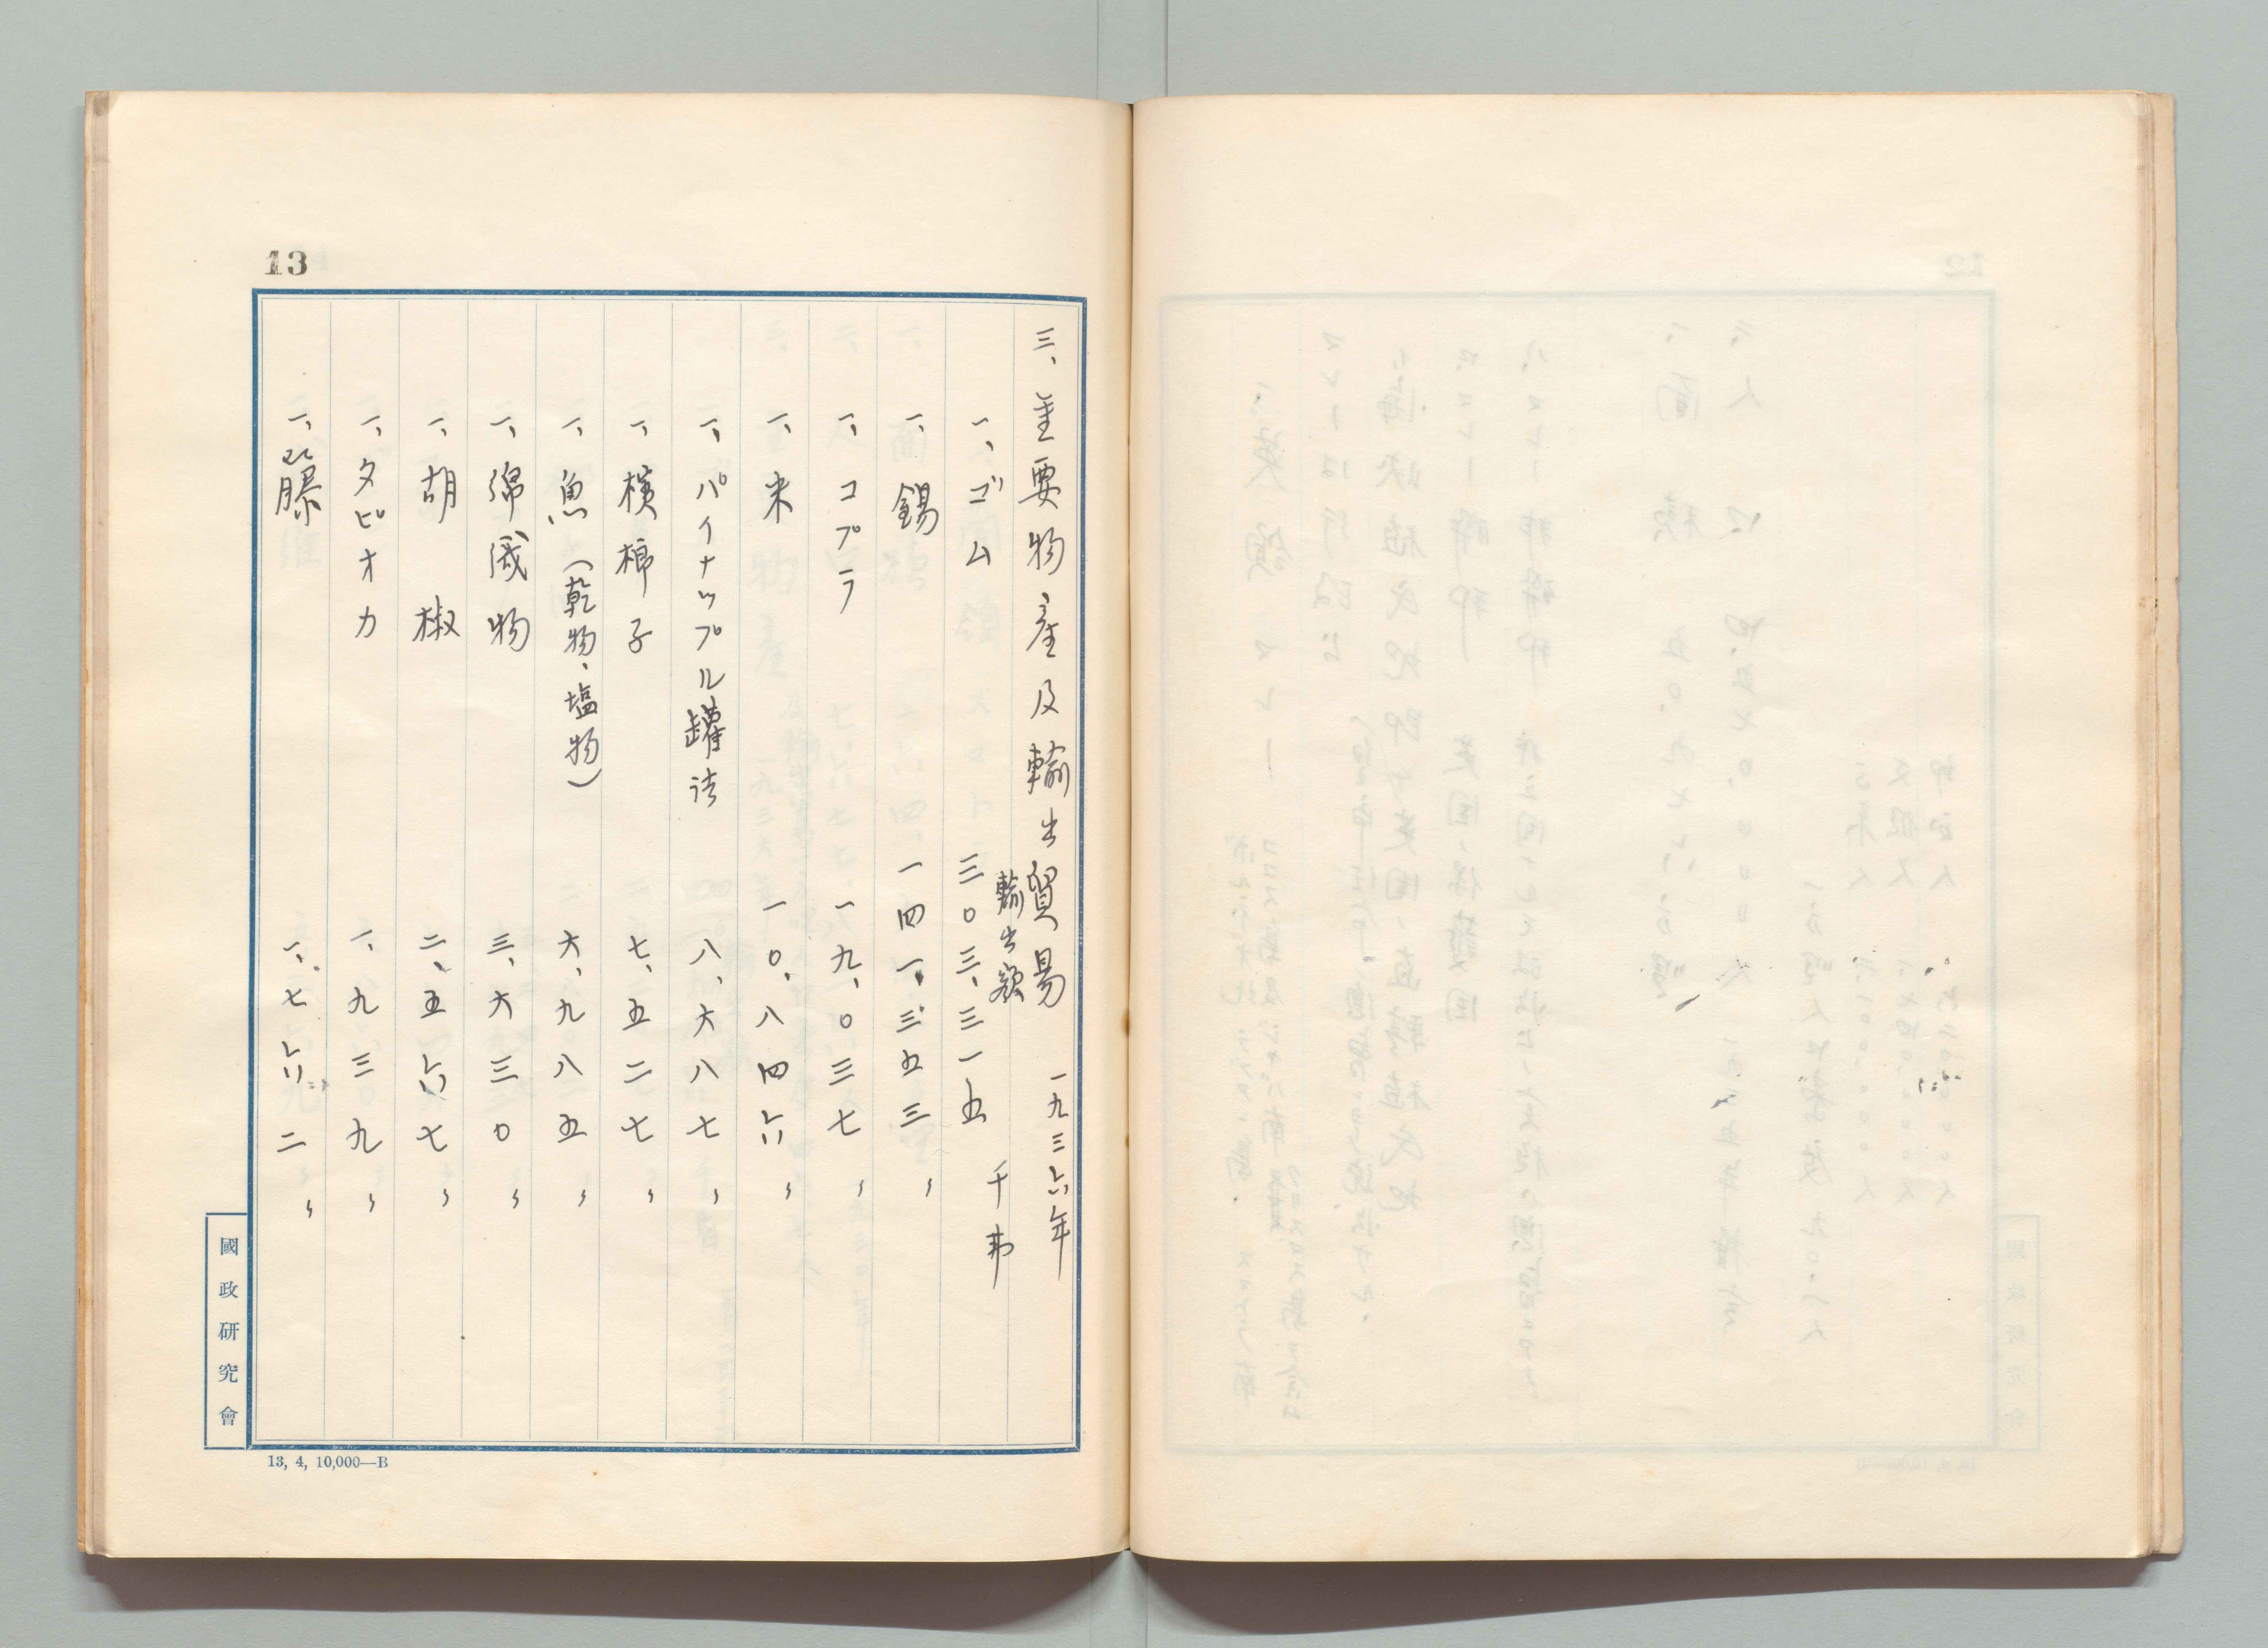 13
三、主要物産及輸出貿易 一九三六年
輸出額 千弗
一、ゴム 三〇三、三一五
一、錫 一四一、三五三 〃
一、コプラ 一九、〇三七 〃
一、米 一〇、八四六 〃
一、パイナップル罐詰 八、六八七 〃
一、檳榔子 七、五二七 〃
一、魚(乾物、塩物) 六、九八五 〃
一、綿織物 三、六三〇 〃
一、胡椒 二、五六七 〃
一、タピオカ 一、九三九 〃
一、籐 一、七六二 〃
國政研究會
13, 4, 10,000—B